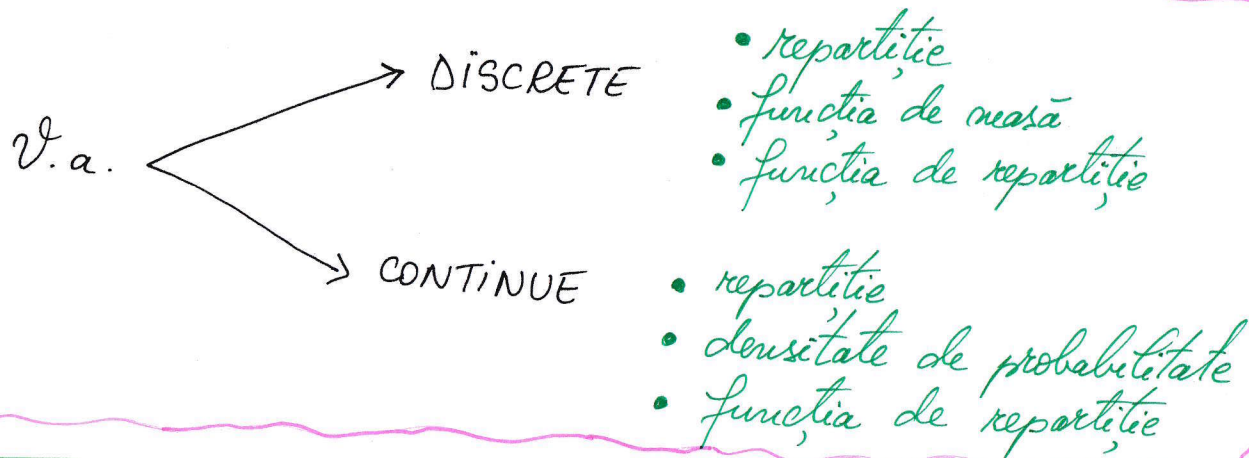 V.a.
DISCRETE
• repartiție
• funcția de masă
• funcția de repartiție
CONTINUE
• repartiție
• densitate de probabilitate
• funcția de repartiție